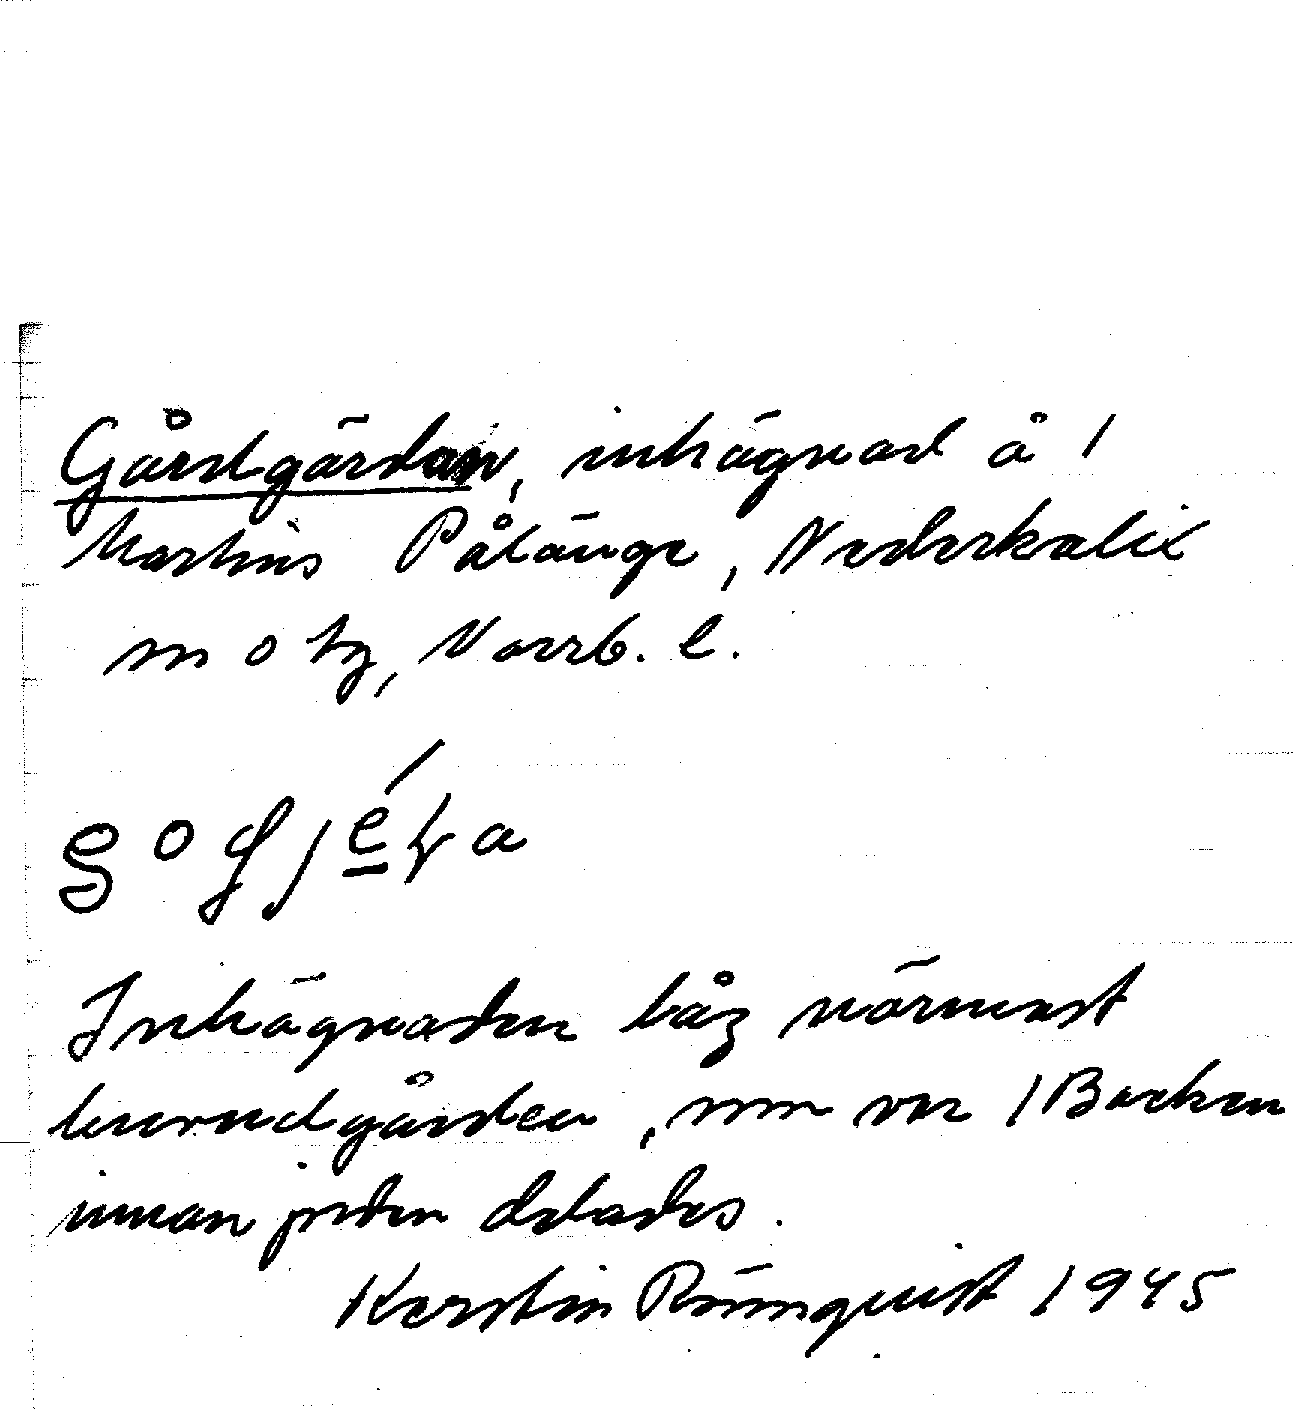 Gårdgärdan, inhägnad å 1
Martins Pålänge, Nederkalix
sn o tg, Norrb. l.
Inhägnaden låg närmast
huvudgården, som var 1 Backen
innan jorden delades.
Kerstin Rönnquist 1945